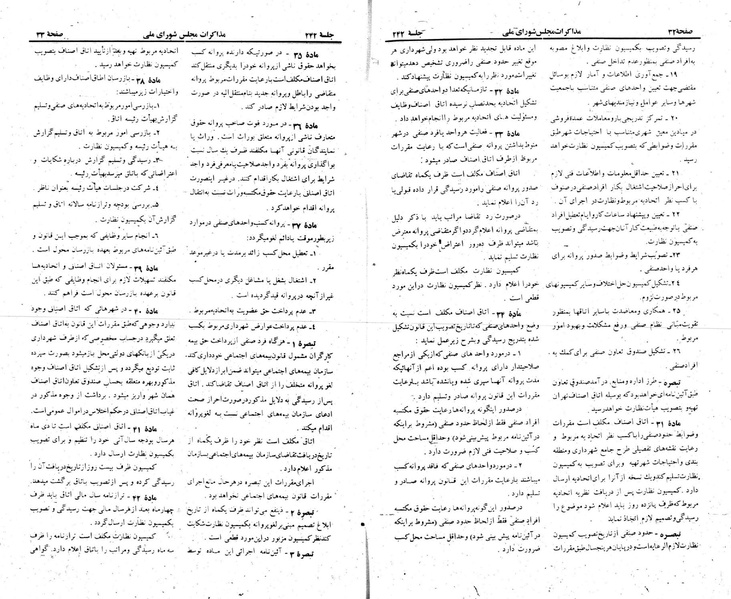 صفحهٔ ۳۲ مذاکرات مجلس شورای ملی جلسهٔ ۲۴۲
رسیدگی و تصویب بکمیسیون نظارت و ابلاغ مصوبه
بافراد صنفی بمنظور عدم تداخل صنفی.
۱۹ـ جمع‌آوری اطلاعات و آمار لازم بوسائل
مقتضی جهت تعیین واحدهای صنفی متناسب با جمعیت
شهرها و سایر عوامل و نیازمندیهای شهر.
۲۰ـ تمرکز تدریجی بار و معاملات عمده فروشی
در میادین معین شهری متناسب با احتیاجات شهر طبق
مقررات و ضوابطی که بتصویب کمیسیون نظارت خواهد
رسید.
۲۱ـ تعیین حداقل معلومات و اطلاعات فنی لازم
برای احراز صلاحیت اشتغال بکار افراد صنفی در صنوف
با کسب نظر اتحادیه مربوط و نظارت در اجرای آن.
۲۲ـ تعیین و پیشنهاد ساعات کار و ایام تعطیل افراد
صنفی با توجه به وضعیت کار آنان جهت رسیدگی و تصویب
به کمیسیون نظارت.
۲۳ـ تصویب شرایط و ضوابط صدور پروانه برای
هر فرد یا واحد صنفی.
۲۴ـ تشکیل کمیسیون حل اختلاف و سایر کمیسیونهای
مربوط در صورت لزوم.
۲۵ـ همکاری و معاضدت با سایر اتاقها بمنظور
تقویت مبانی نظام صنفی و رفع مشکلات و بهبود امور
صنفی.
۲۶ـ تشکیل صندوق تعاون صنفی برای کمک به
افراد صنفی.
تبصره ـ طرز اداره و منابع درآمد صندوق تعاون
طبق آئین‌نامه‌ای خواهد بود که بوسیله اتاق اصناف تهران
تهیه و بتصویب هیأت نظارت خواهد رسید.
مادهٔ ۳۱ ـ اتاق اصناف مکلف است مقررات
و ضوابط حدود صنفی را با کسب نظر اتحادیه مربوط و
رعایت نقشه‌های تفصیلی طرح جامع شهرداری و منطقه
بندی و احتیاجات شهر تهیه و برای تصویب به کمیسیون
نظارت تسلیم کند و یک نسخه از آنرا برای اتحادیه ارسال
دارد. کمیسیون نظارت پس از دریافت نظریه اتحادیه
مربوط که ظرف پانزده روز باید اعلام شود موضوع را
رسیدگی و تصمیم لازم اتخاذ نماید.
تبصره ـ حدود صنفی از تاریخ تصویب کمیسیون
نظارت لازم‌الرعایه است و در پایان هر پنجسال طبق مقررات
این ماده قابل تجدید نظر خواهد بود ولی شهرداری هر
موقع تغییر حدود صنفی را ضروری تشخیص دهد میتواند
تغییرات مورد نظر را به کمیسیون نظارت پیشنهاد کند.
مادهٔ ۳۲ ـ تا زمانیکه تعداد واحدهای صنفی برای
تشکیل اتحادیه بحد نصاب نرسیده اتاق اصناف وظایف
و مسئولیت‌های اتحادیه مربوط را انجام خواهد داد.
مادهٔ ۳۳ ـ فعالیت هر واحد یا فرد صنفی در شهر
منوط بداشتن پروانه صنفی است که با رعایت مقررات
مربوط از طرف اتاق اصناف صادر میشود:
اتاق اصناف مکلف است ظرف یکماه تقاضای
صدور پروانه صنفی را مورد رسیدگی قرار داده قبولی یا
رد آنرا اعلام نماید.
در صورت رد تقاضا مراتب باید با ذکر دلیل
به متقاضی پروانه اعلام گردد و اگر متقاضی پروانه معترض
باشد میتواند ظرف ده روز اعتراض خود را بکمیسیون
نظارت تسلیم نماید.
کمیسیون نظارت مکلف است ظرف یکماه نظر
خود را اعلام دارد. نظر کمیسیون نظارت در این مورد
قطعی است.
مادهٔ ۳۴ ـ اتاق اصناف مکلف است نسبت به
وضع واحدهای صنفی که تا تاریخ تصویب این قانون تشکیل
شده بتدریج رسیدگی و بشرح زیر عمل نماید:
۱ـ در مورد واحدهای صنفی که از یکی از مراجع
صلاحیتدار دارای پروانه کسب بوده اعم از آنهائیکه
مدت پروانه آنها سپری شده و یا نشده باشد با رعایت
مقررات این قانون پروانه صادر و تسلیم دارد.
در صدور اینگونه پروانه‌ها رعایت حقوق مکتسبه
افراد صنفی فقط از لحاظ حدود صنفی (مشروط بر اینکه
در آئین‌نامه مربوط پیش‌بینی شود) و حداقل مساحت محل
کسب و صلاحیت فنی لازم ضرورت دارد.
۲ـ در مورد واحدهای صنفی که فاقد پروانه کسب
میباشند با رعایت مقررات این قانون پروانه صادر و
تسلیم دارد.
در صدور این گونه پروانه‌ها رعایت حقوق مکتسبه
افراد صنفی فقط از لحاظ حدود صنفی (مشروط بر اینکه
در آئین‌نامه پیش بینی شود) و حداقل مساحت محل کسب
میباشد.
جلسهٔ ۲۴۲ مذاکرات مجلس شورای ملی صفحهٔ ۳۳
مادهٔ ۳۵ ـ در صورتیکه دارنده پروانه کسب
بخواهد حقوق ناشی از پروانه را بدیگری منتقل کند
اتاق اصناف مکلف است با رعایت مقررات مربوط پروانه
متقاضی را باطل و پروانه جدید بنام منتقل‌الیه در صورت
واجد بودن شرایط لازم صادر کند.
مادهٔ ۳۶ ـ در مورد فوت صاحب پروانه حقوق
متعارف ناشی از پروانه متعلق بوراث است. وراث یا
نمایندگان قانونی آنها مکلفند ظرف یک سال نسبت
بواگذاری پروانه بفرد واحد صلاحیت یا معرفی فرد واجد
شرایط برای اشتغال بکار اقدام کنند. در غیر اینصورت
اتاق اصناف با رعایت حقوق مکتسبه وراث نسبت به انتقال
پروانه اقدام خواهد کرد.
مادهٔ ۳۷ ـ پروانه کسب واحدهای صنفی در موارد
زیر بطور موقت یا دائم لغو میگردد:
۱ـ تعطیل محل کسب زائد بر مدت یا در غیر موعد
مقرر.
۲ـ اشتغال بشغل یا مشاغل دیگری در محل کسب
غیر از آنچه در پروانه قید گردیده است.
۳ـ عدم پرداخت حق عضویت به اتحادیه مربوط.
۴ـ عدم پرداخت عوارض شهرداری مربوط بکسب
تبصرهٔ ۱ ـ هرگاه فرد صنفی از پرداخت حق بیمه
کارگران مشمول قانون بیمه‌های اجتماعی خودداری کند،
سازمان بیمه‌های اجتماعی میتواند ضمن ابراز دلایل کافی
لغو پروانه متخلف را از اتاق اصناف تقاضا کند. اتاق
پس از رسیدگی به دلایل مذکور در صورت احراز صحت
ادعای سازمان بیمه‌های اجتماعی نسبت به لغو پروانه
اقدام میکند.
اتاق مکلف است نظر خود را ظرف یکماه از
تاریخ دریافت تقاضای سازمان بیمه‌های اجتماعی بسازمان
مذکور اعلام دارد.
اجرای مقررات این تبصره در هر حال مانع اجرای
مقررات قانون بیمه‌های اجتماعی نخواهد بود.
تبصرهٔ ۲ ـ ذینفع میتواند ظرف یکماه از تاریخ
ابلاغ تصمیم مبنی بر لغو پروانه بکمیسیون نظارت شکایت
کند نظر کمیسیون مزبور در این مورد قطعی است.
تبصرهٔ ۳ ـ آئین‌نامه اجرائی این ماده توسط
اتحادیه مربوط تهیه و بعد از تأیید اتاق اصناف بتصویب
کمیسیون نظارت خواهد رسید.
مادهٔ ۳۸ ـ بازرسان اطاق اصناف دارای وظایف
و اختیارات زیر میباشند:
۱ـ بازرسی امور مربوط به اتحادیه‌های صنفی و تسلیم
گزارش بهیأت رئیسه اتاق.
۲ـ بازرسی امور مربوط به اتاق و تسلیم گزارش
به هیأت رئیسه و کمیسیون نظارت.
۳ـ رسیدگی و تسلیم گزارش درباره شکایات و
اعتراضاتی که به اتاق میرسد بهیأت رئیسه.
۴ـ شرکت در جلسات هیأت رئیسه بعنوان ناظر.
۵ـ بررسی بودجه و ترازنامه سالانه اتاق و تسلیم
گزارش آن بکمیسیون نظارت.
۶ـ انجام سایر وظایفی که بموجب این قانون و
طبق آئین‌نامه‌های مربوط بعهده بازرسان محول است.
مادهٔ ۳۹ ـ مسئولان اتاق اصناف و اتحادیه‌ها
مکلفند تسهیلات لازم برای انجام وظایفی که طبق این
قانون بر عهده بازرسان محول است فراهم کنند.
مادهٔ ۴۰ ـ در شهرهائی که اتاق اصناف وجود
ندارد وجوهی که طبق مقررات این قانون به اتاق اصناف
تعلق میگیرد در حساب مخصوصی که از طرف شهرداری
در یکی از بانکهای دولتی محل باز میشود بصورت سپرده
ثابت تودیع میگردد و پس از تشکیل اتاق اصناف وجوه
مذکور و بهره متعلقه بحساب صندوق تعاون اتاق اصناف
همان شهر واریز میشود. برداشت از وجوه مذکور در
غیاب اتاق اصناف در حکم اختلاس در اموال عمومی است.
مادهٔ ۴۱ ـ اتاق اصناف مکلف است تا دی ماه
هر سال بودجه سال آتی خود را تنظیم و برای تصویب
بکمیسیون نظارت ارسال دارد.
کمیسیون ظرف بیست روز از تاریخ دریافت آن را
رسیدگی کرده و پس از تصویب به اتاق برگشت میدهد.
مادهٔ ۴۲ ـ ترازنامه سال مالی اتاق باید ظرف
چهارماه بعد از هر سال مالی جهت رسیدگی و تصویب
بکمیسیون نظارت ارسال گردد.
کمیسیون نظارت مکلف است ترازنامه را ظرف
سه ماه رسیدگی و مراتب را به اتاق اعلام دارد. گواهی